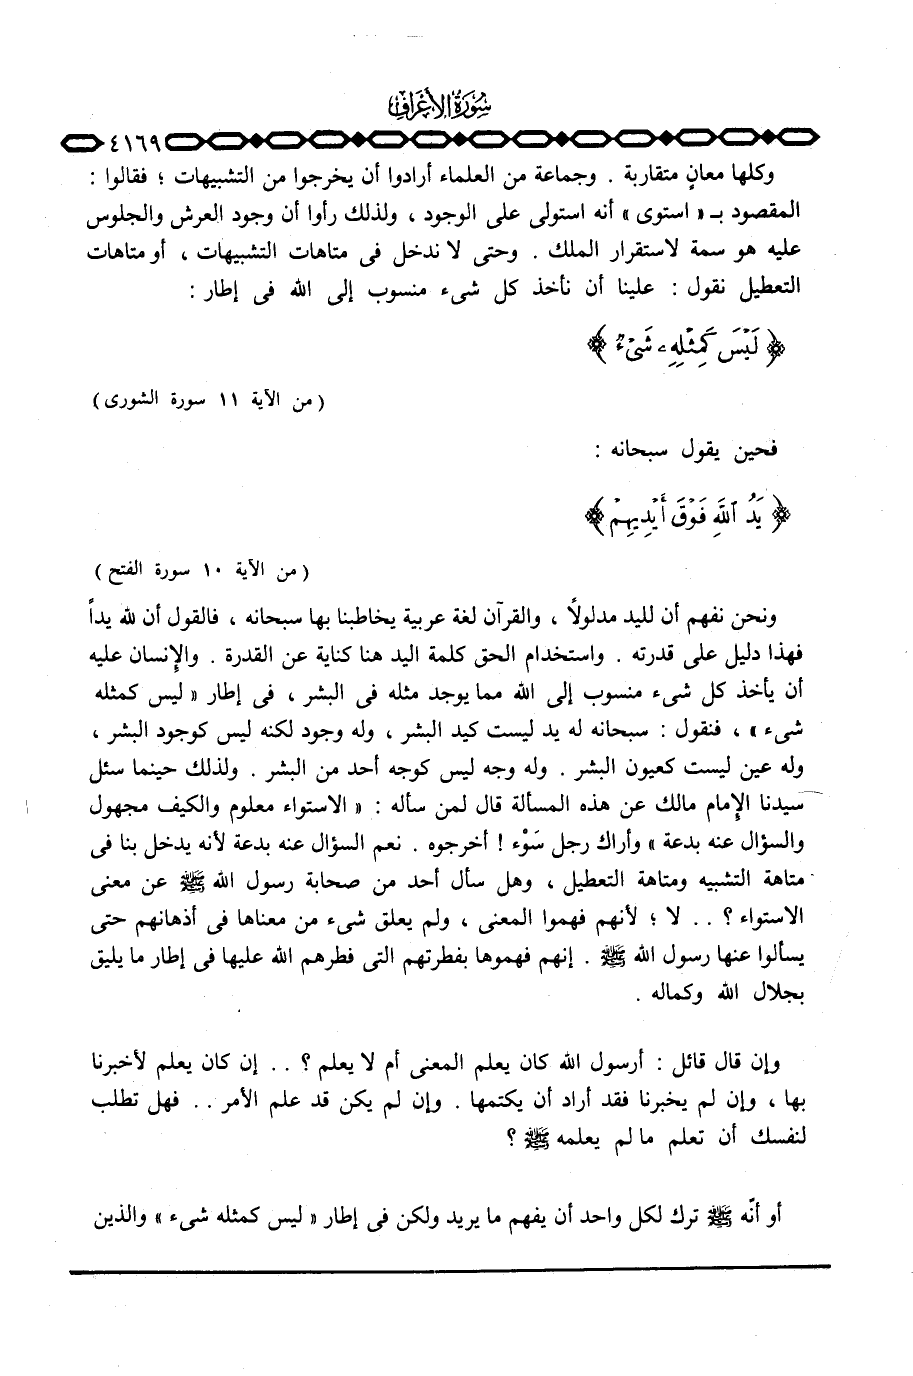 سورة الأعراف
٤١٦٩
وكلها معانٍ متقاربة . وجماعة من العلماء أرادوا أن يخرجوا من التشبيهات ؛ فقالوا :
المقصود بـ « استوى » أنه استولى على الوجود ، ولذلك رأوا أن وجود العرش والجلوس
عليه هو سمة لاستقرار الملك . وحتى لا ندخل فى متاهات التشبيهات ، أو متاهات
التعطيل نقول : علينا أن نأخذ كل شىء منسوب إلى الله فى إطار :
﴿ لَيْسَ كَمِثْلِهِۦ شَىْءٌ ﴾
( من الآية ١١ سورة الشورى )
فحين يقول سبحانه :
﴿ يَدُ ٱللَّهِ فَوْقَ أَيْدِيهِمْ ﴾
( من الآية ١٠ سورة الفتح )
ونحن نفهم أن لليد مدلولاً ، والقرآن لغة عربية يخاطبنا بها سبحانه ، فالقول أن لله يداً
فهذا دليل على قدرته . واستخدام الحق كلمة اليد هنا كناية عن القدرة . والإنسان عليه
أن يأخذ كل شىء منسوب إلى الله مما يوجد مثله فى البشر ، فى إطار « ليس كمثله
شىء » ، فنقول : سبحانه له يد ليست كيد البشر ، وله وجود لكنه ليس كوجود البشر ،
وله عين ليست كعيون البشر . وله وجه ليس كوجه أحد من البشر . ولذلك حينما سئل
سيدنا الإمام مالك عن هذه المسألة قال لمن سأله : « الاستواء معلوم والكيف مجهول
والسؤال عنه بدعة » وأراك رجل سَوْء ! أخرجوه . نعم السؤال عنه بدعة لأنه يدخل بنا فى
متاهة التشبيه ومتاهة التعطيل ، وهل سأل أحد من صحابة رسول الله ﷺ عن معنى
الاستواء ؟ . . لا ؛ لأنهم فهموا المعنى ، ولم يعلق شىء من معناها فى أذهانهم حتى
يسألوا عنها رسول الله ﷺ . إنهم فهموها بفطرتهم التى فطرهم الله عليها فى إطار ما يليق
بجلال الله وكماله .
وإن قال قائل : أرسول الله كان يعلم المعنى أم لا يعلم ؟ . . إن كان يعلم لأخبرنا
بها ، وإن لم يخبرنا فقد أراد أن يكتمها . وإن لم يكن قد علم الأمر . . فهل تطلب
لنفسك أن تعلم ما لم يعلمه ﷺ ؟
أو أنّه ﷺ ترك لكل واحد أن يفهم ما يريد ولكن فى إطار « ليس كمثله شىء » والذين